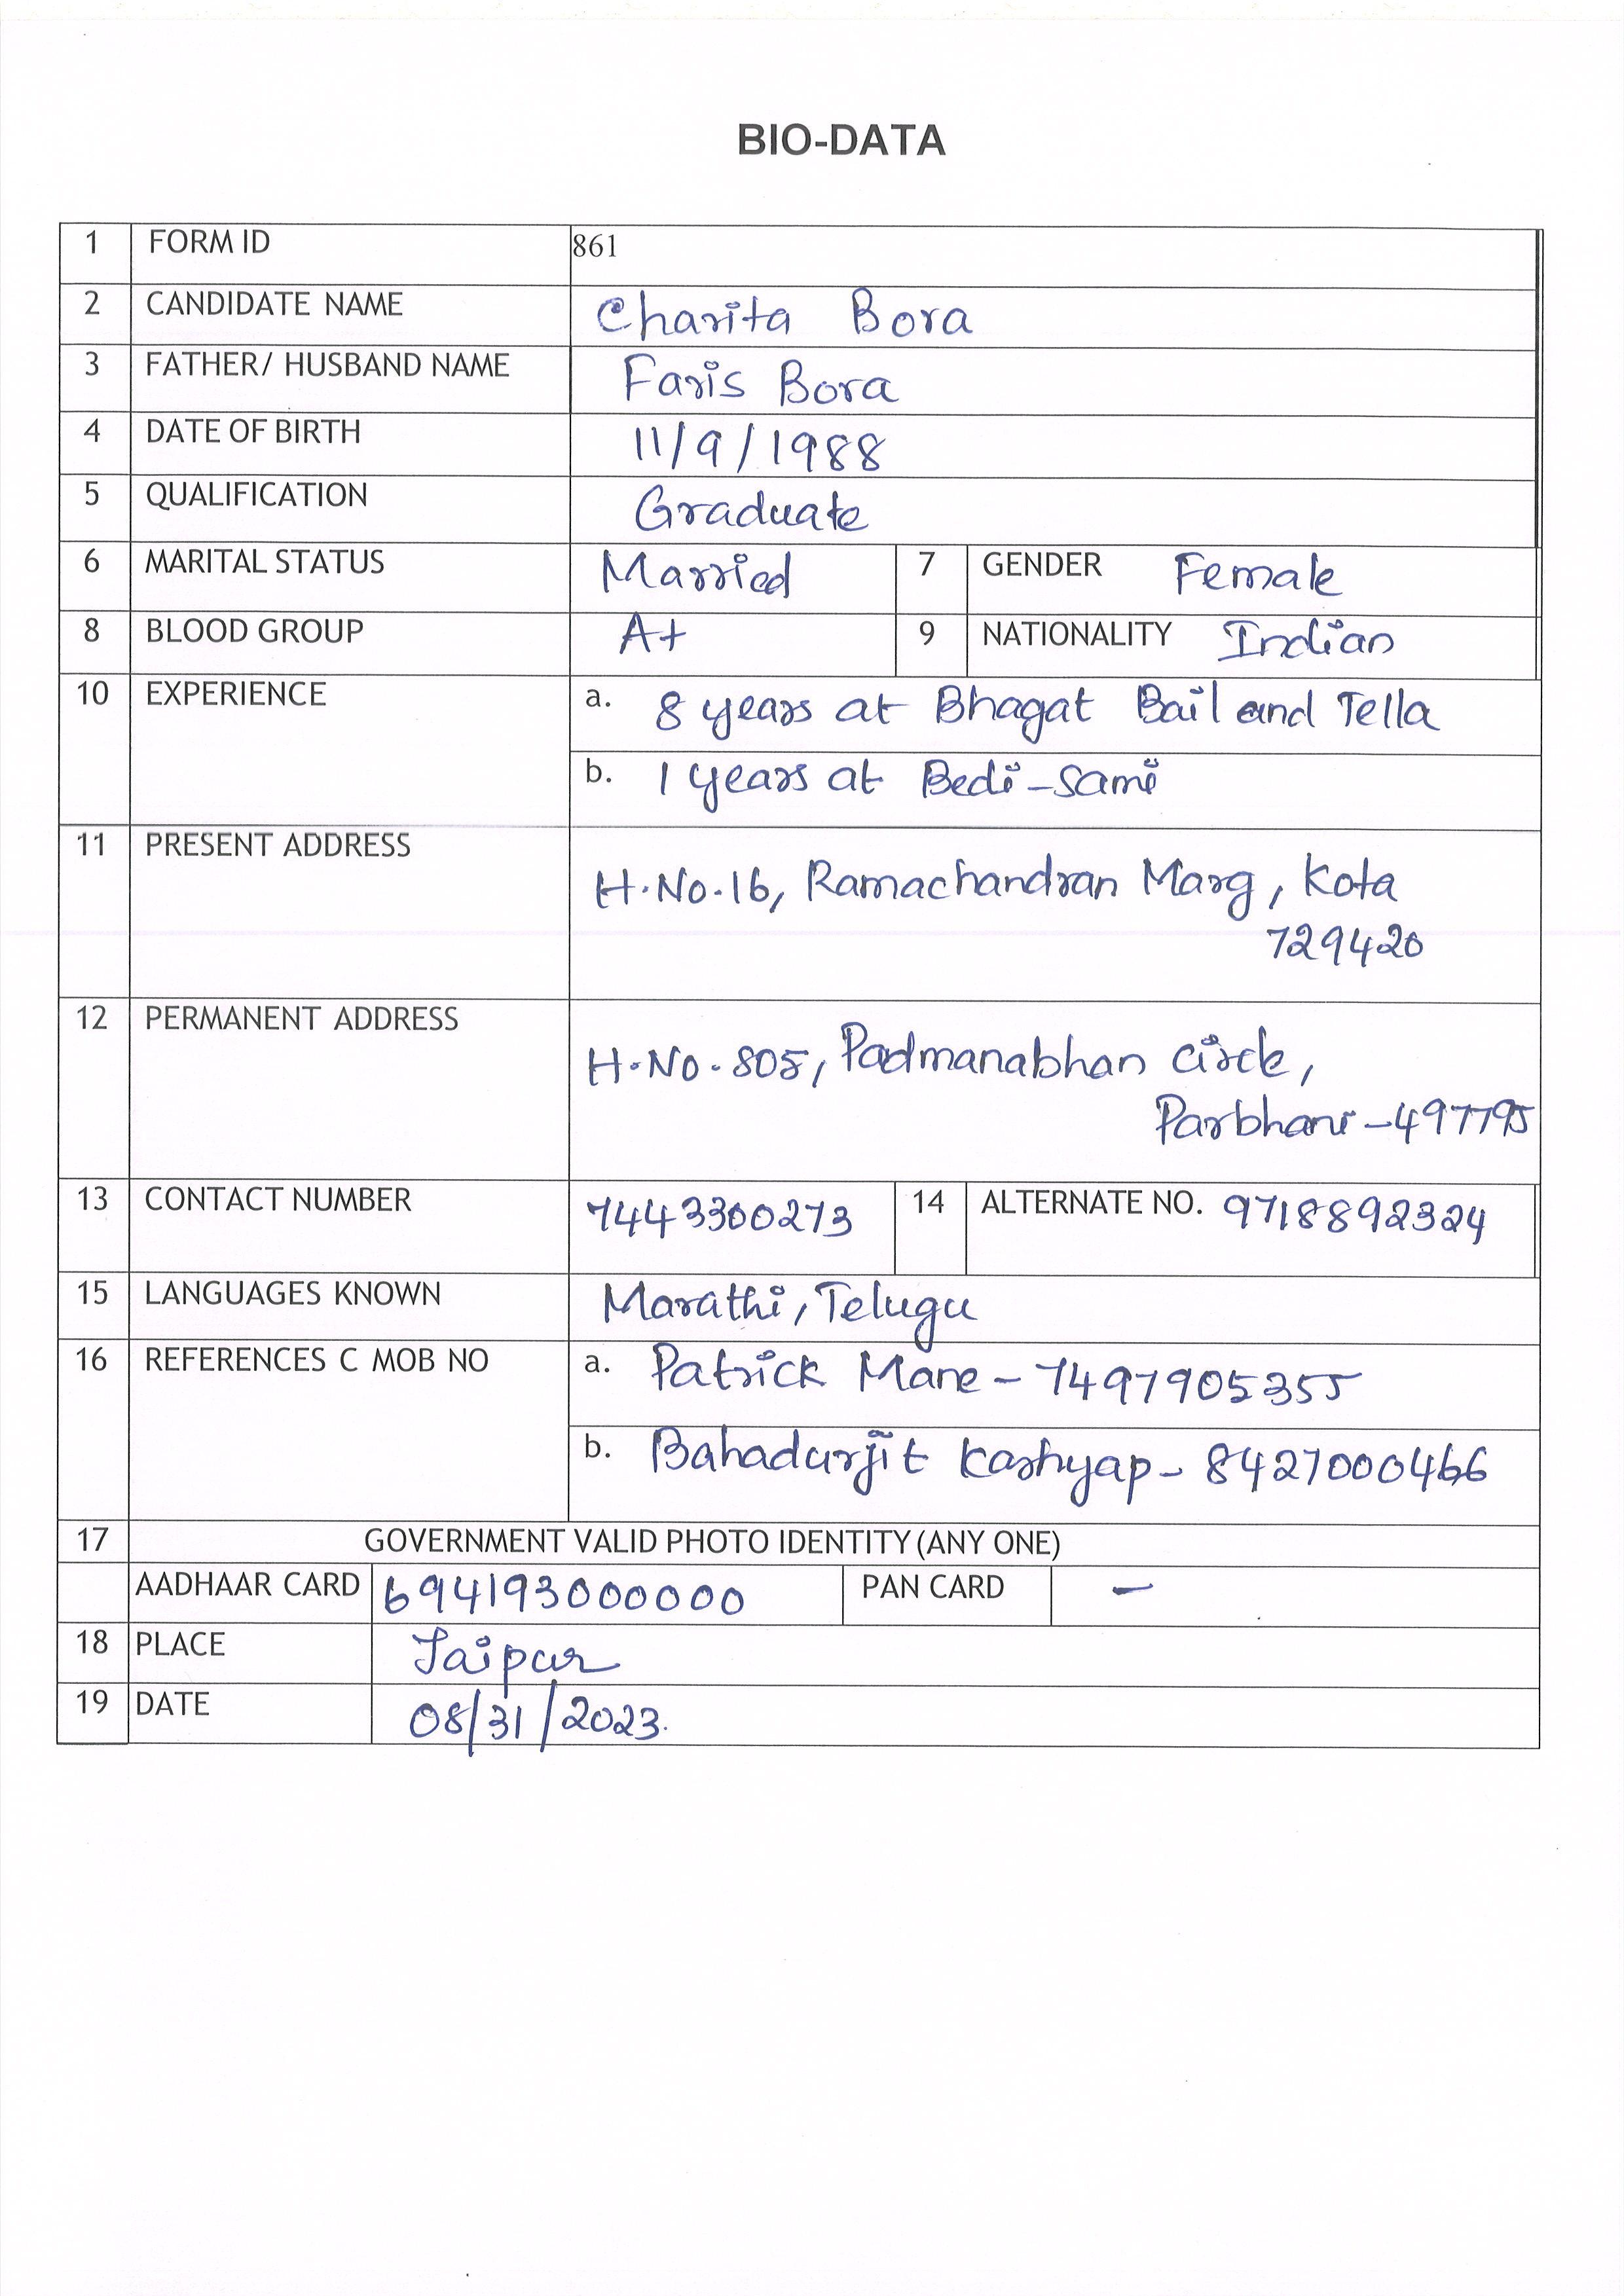 BIO-DATA
1 FORM ID 861
2 CANDIDATE NAME Charita Bora
3 FATHER/ HUSBAND NAME Faris Bora
4 DATE OF BIRTH 11/9/1988
5 QUALIFICATION Graduate
6 MARITAL STATUS Married 7 GENDER Female
8 BLOOD GROUP A+ 9 NATIONALITY Indian
10 EXPERIENCE a. 8 years at Bhagat Bail and Tella
b. 1 years at Bedi-Sami
11 PRESENT ADDRESS
H.No.16, Ramachandran Marg, Kota
729420
12 PERMANENT ADDRESS
H.No.805, Padmanabhan Circle,
Parbhani-497795
13 CONTACT NUMBER 7443300273 14 ALTERNATE NO. 9718892324
15 LANGUAGES KNOWN Marathi, Telugu
16 REFERENCES C MOB NO a. Patrick Mane - 7497905355
b. Bahadurjit Kashyap - 8427000466
17 GOVERNMENT VALID PHOTO IDENTITY (ANY ONE)
AADHAAR CARD 694193000000 PAN CARD -
18 PLACE Jaipur
19 DATE 08/31/2023.